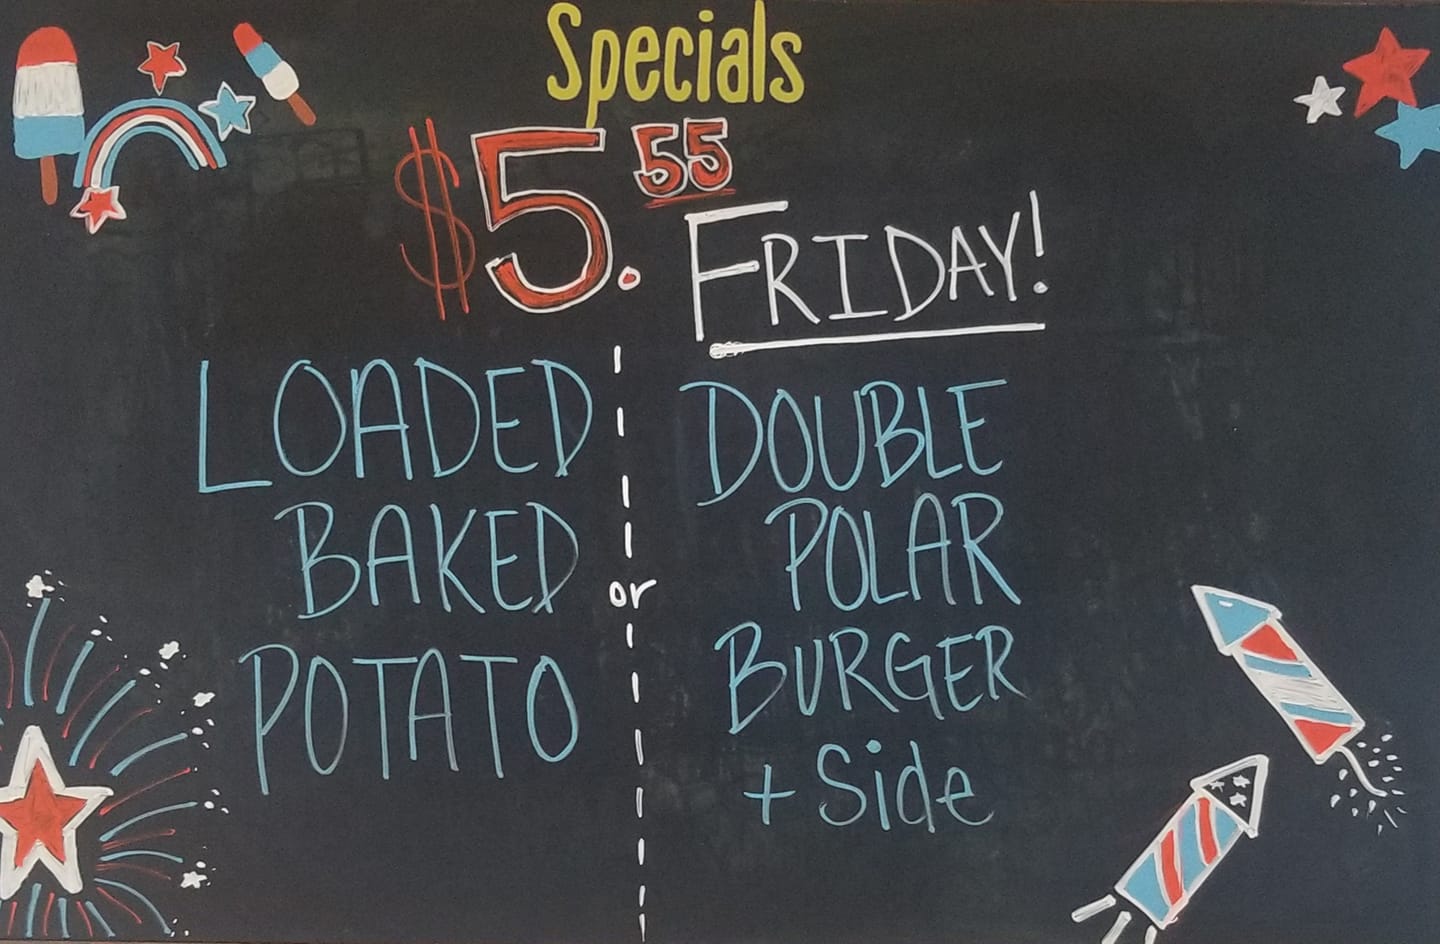 Specials
$5.55
FRIDAY!
LOADED
BAKED
POTATO
or
DOUBLE
POLAR
BURGER
+ Side